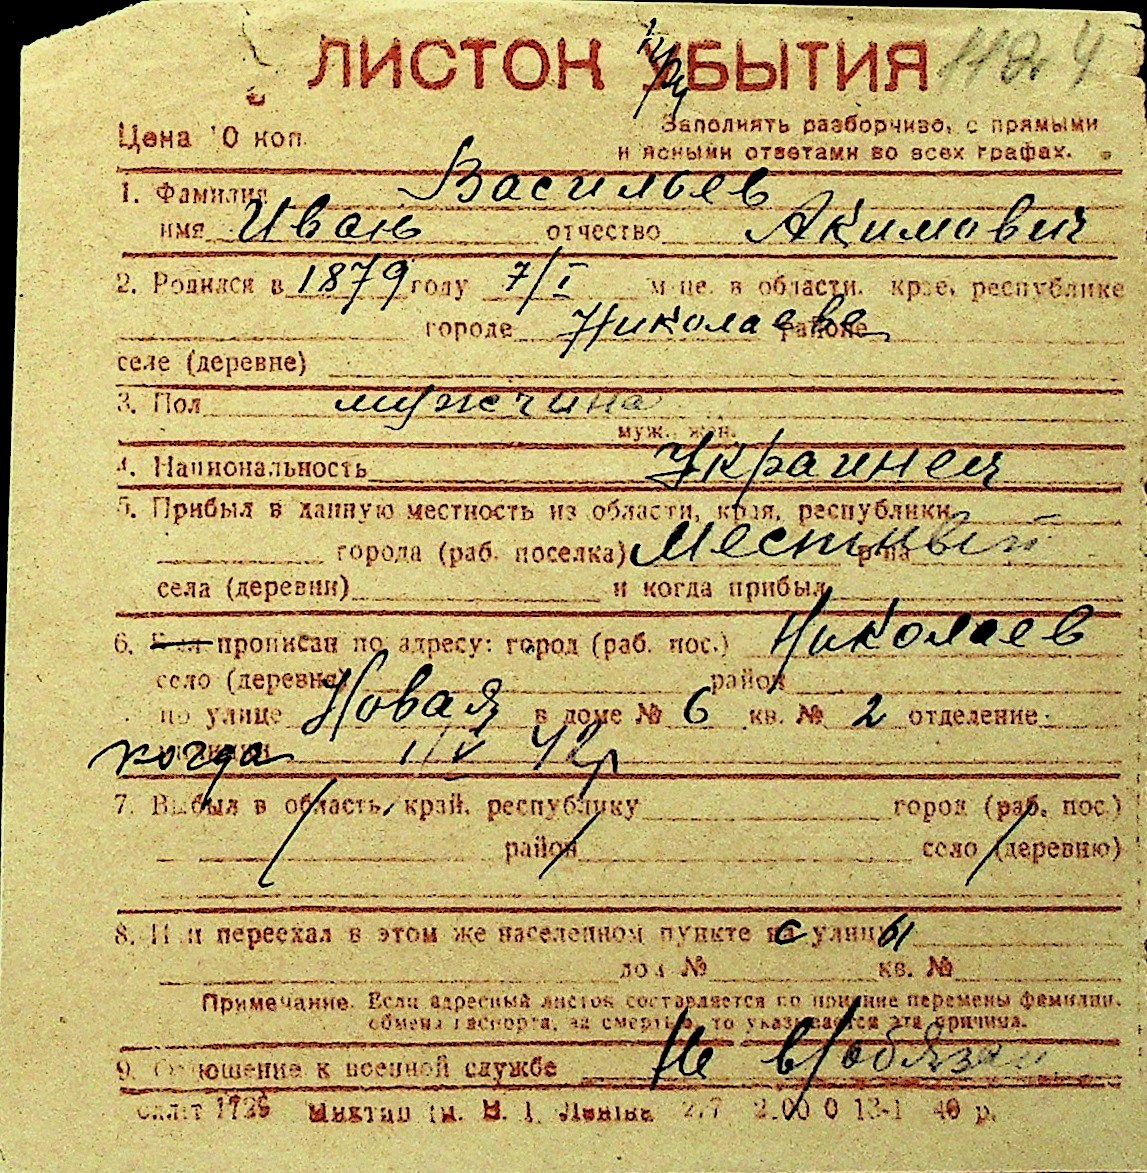 ЛИСТОК УБЫТИЯ
Цена 10 коп.
Заполнять разборчиво, с прямыми
и ясными ответами во всех графах.
1. Фамилия Васильев
имя Иван отчество Акимович
2. Родился в 1879 году 7/I м-це, в области, крае, республике
городе Николаеве районе
селе (деревне)
3. Пол мужчина
муж., жен.
4. Национальность Украинец
5. Прибыл в данную местность из области, края, республики
города (раб. поселка) Местный р-на
села (деревни) и когда прибыл
6. Был прописан по адресу: город (раб. пос.) Николаев
село (деревне) район
по улице Новая в доме № 6 кв. № 2 отделение
когда
7. Выбыл в область, край, республику город (раб. пос.)
район село (деревню)
8. Или переехал в этом же населенном пункте с улицы
дом № кв. №
Примечание. Если адресный листок составляется по причине перемены фамилии,
обмена паспорта, за смертью, то указывается эта причина.
9. Отношение к военной службе Не в/обязан
1940 р.